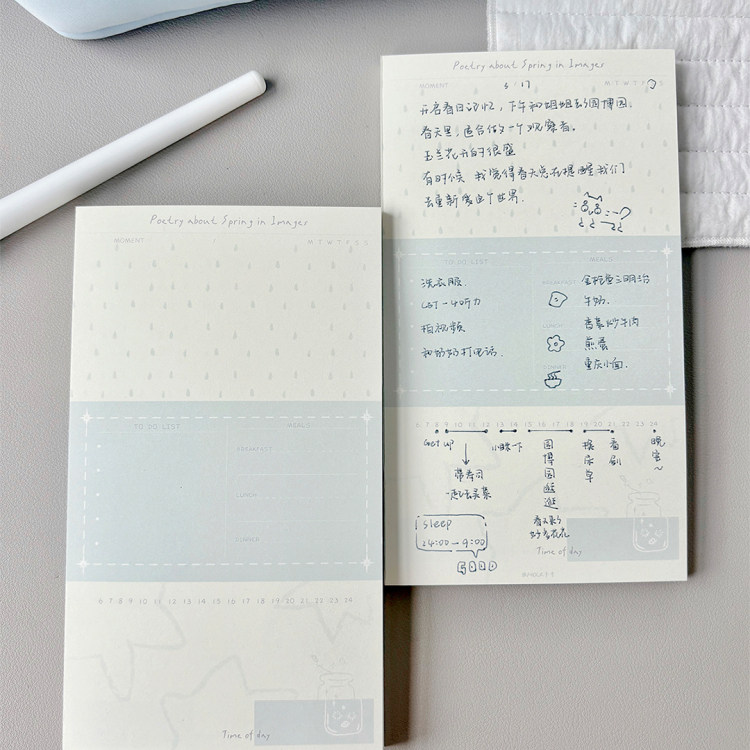 Poetry about Spring in Images
MOMENT
3 17
M T W T F S S
春天里,适合做一个观察者。
玉兰花开的很盛
有时候 我觉得春天总在提醒我们
去重新爱这个世界.
TO DO LIST
MEALS
洗衣服.
BREAKFAST
金枪鱼三明治
牛奶.
拍视频
LUNCH
番茄炒牛肉
煎蛋
和奶奶打电话.
重庆小面.
6 7 8 9 10 11 12 13 14 15 16 17 18 19 20 21 22 23 24
Get up
小睡一下
园博园逛逛
看剧
晚安~
带寿司
一起去采集
春天到了
好多花花
sleep
24:00 — 9:00
Time of day
Poetry about Spring in Images
MOMENT /
M T W T F S S
TO DO LIST
MEALS
BREAKFAST
LUNCH
DINNER
6 7 8 9 10 11 12 13 14 15 16 17 18 19 20 21 22 23 24
Time of day